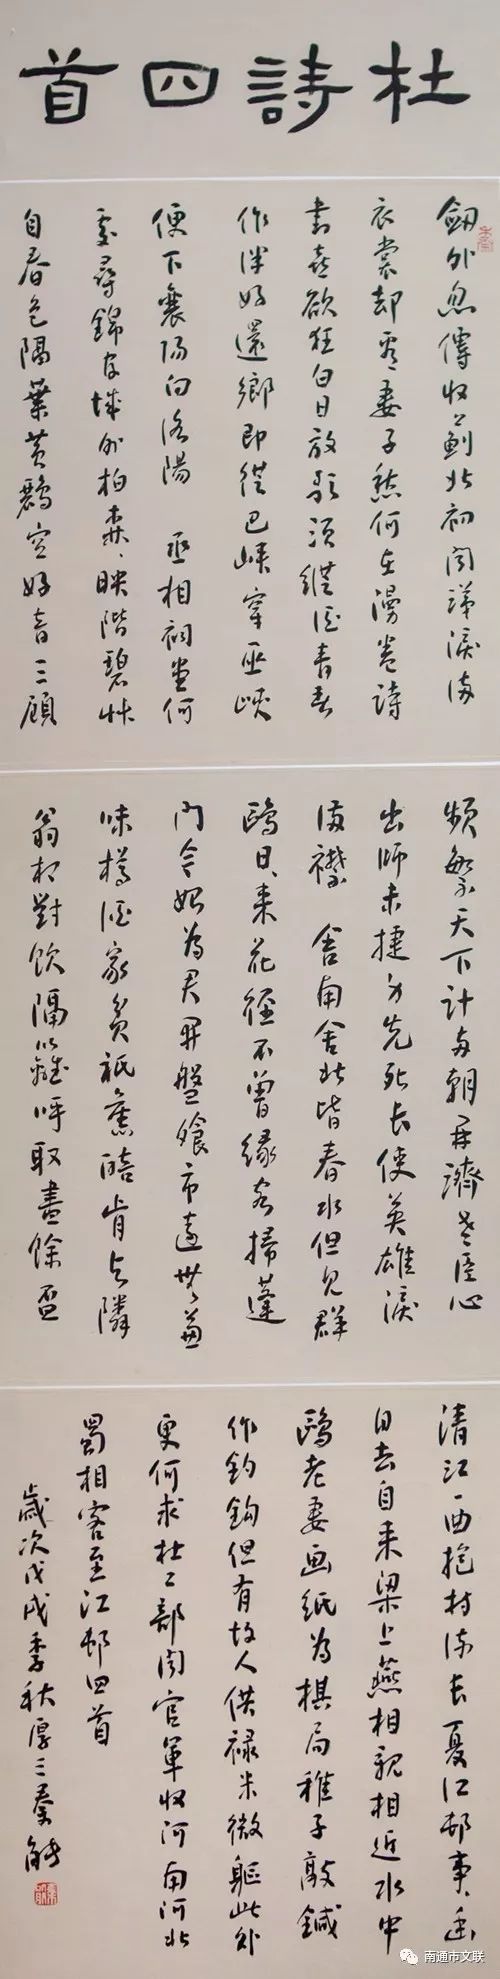 杜詩四首
劍外忽傳收薊北初聞涕淚滿
衣裳却看妻子愁何在漫卷詩
書喜欲狂白日放歌須縱酒青春
作伴好還鄉即從巴峽穿巫峽
便下襄陽向洛陽 丞相祠堂何
處尋錦官城外柏森〻映階碧草
自春色隔葉黃鸝空好音三顧
頻繁天下計兩朝開濟老臣心
出師未捷身先死長使英雄淚
滿襟 舍南舍北皆春水但見群
鷗日〻來花徑不曾緣客掃蓬
門今始為君開盤飧市遠無兼
味樽酒家貧祗舊醅肯與隣
翁相對飲隔籬呼取盡餘盃
清江一曲抱村流長夏江邨事〻幽
自去自來梁上燕相親相近水中
鷗老妻画紙為棋局稚子敲鍼
作釣鈎但有故人供祿米微軀此外
更何求杜工部聞官軍收河南河北
蜀相客至江邨四首
歲次戊戌季秋厚三秦能
南通市文联